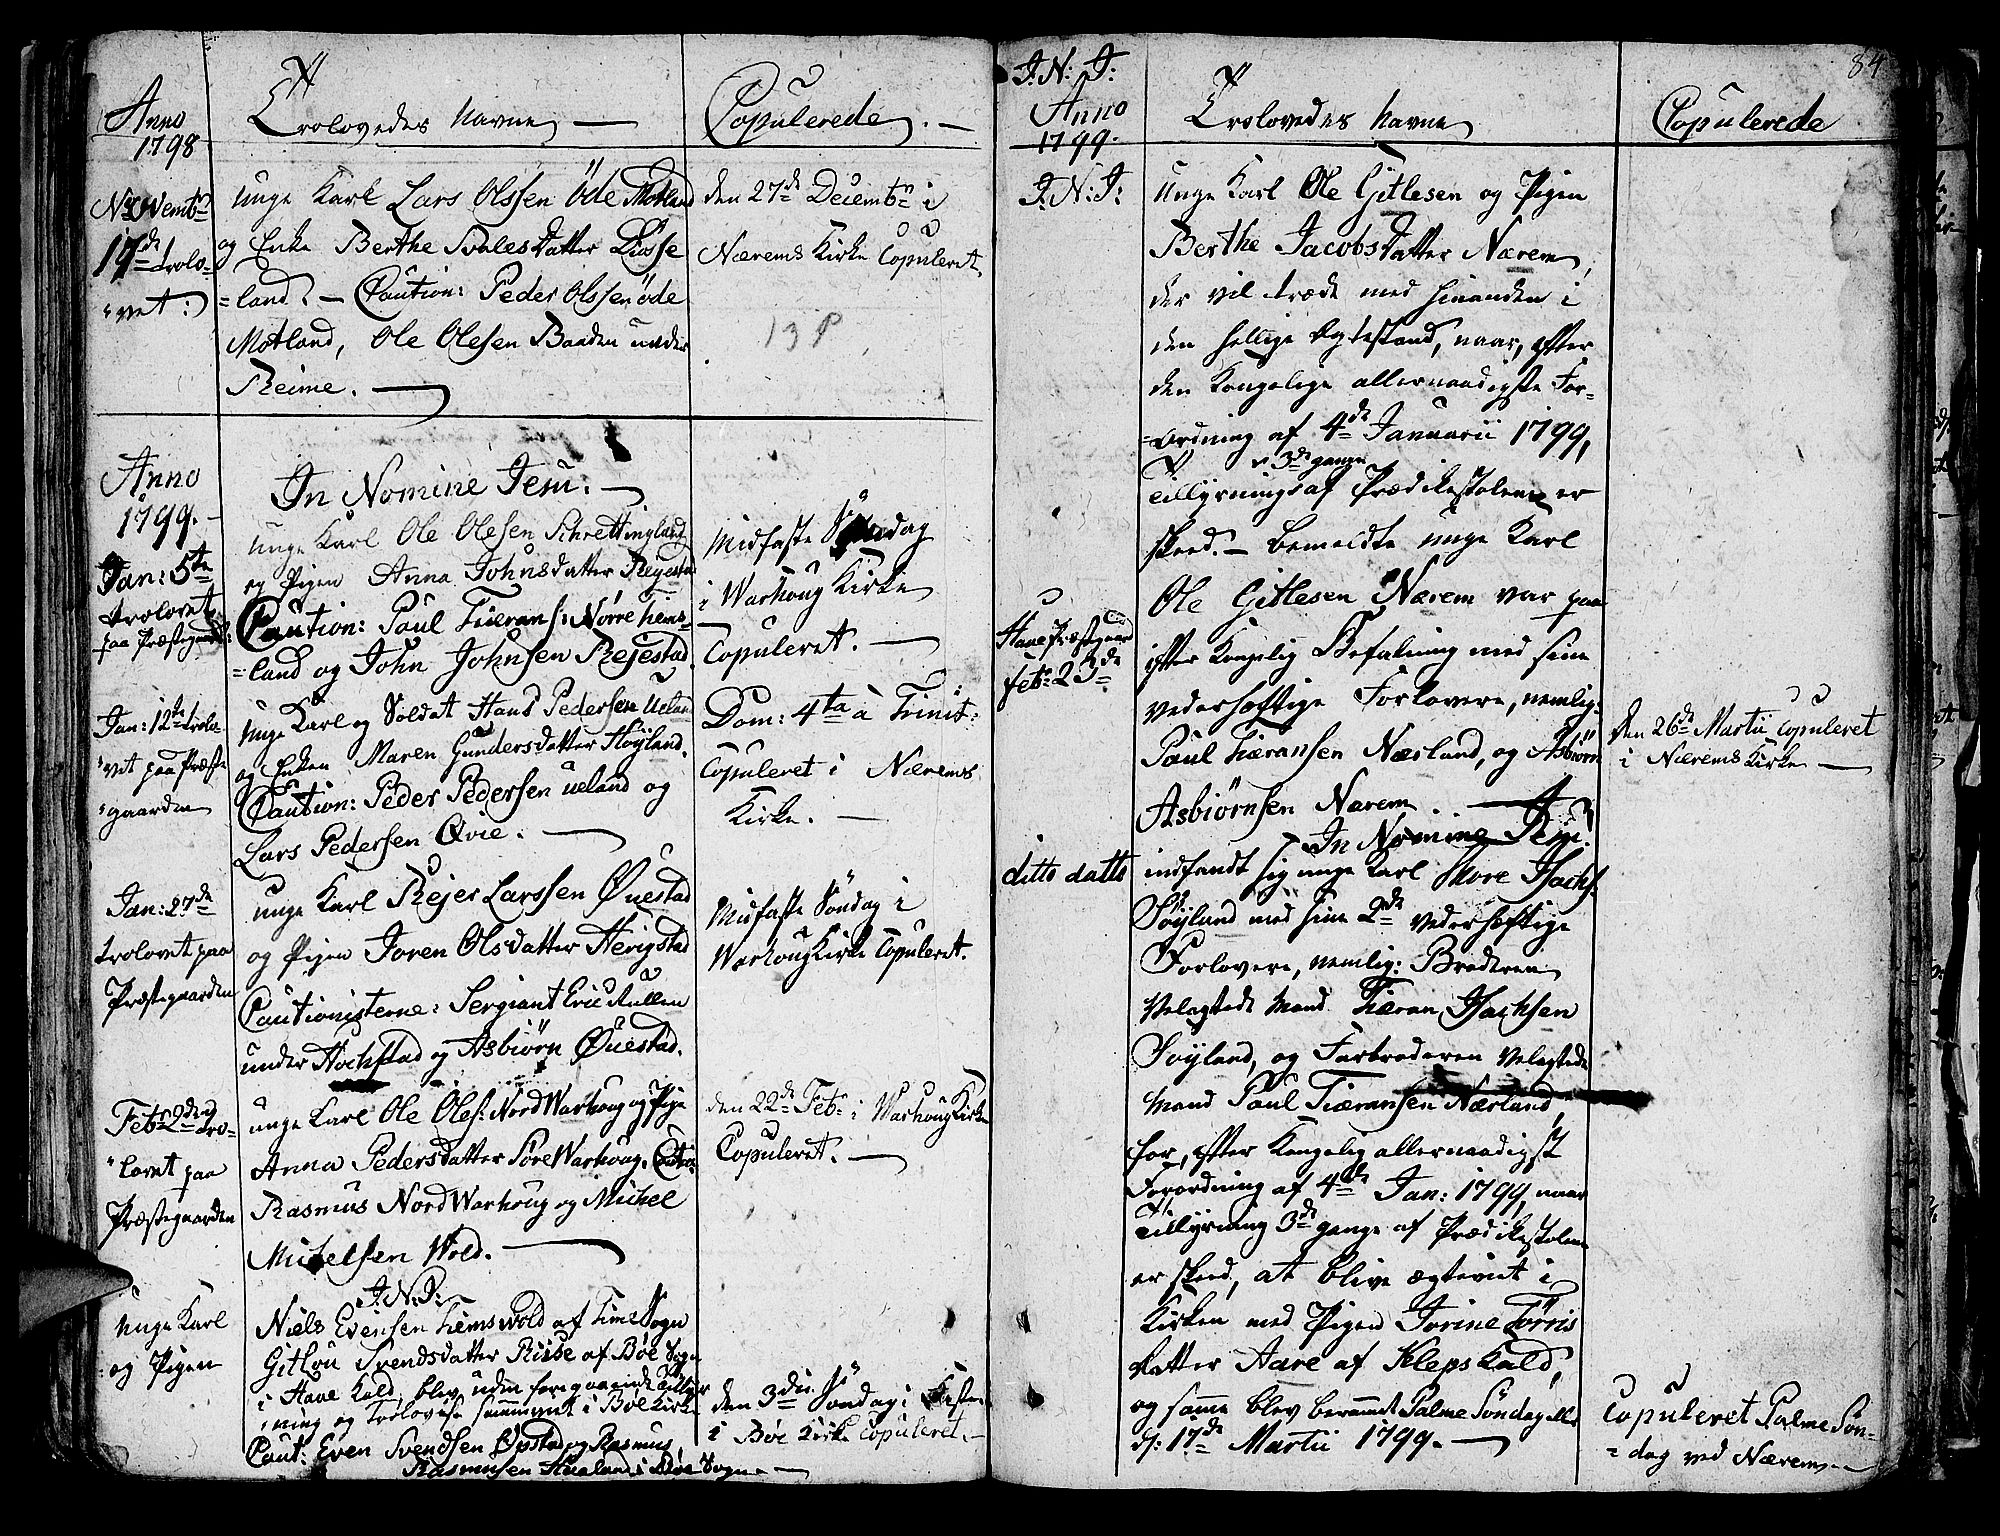 Anno
1798
Trolovedes Navne
Copulerede.
Novembr
17de trolo-
vet:
unge Karl Lars Olssen Öde Motland
og Enke Berthe Svales datter Diosse
=land. - Caution: Peder Olssen öde
Motland, Ole Olesen Baaden under
Reime.
den 27de Decembr i
Nærems Kirke Copuleret.
13 P
Anno
1799.
In Nomine Jesu.
Jan: 5te
trolovet
paa Præstegaard:
unge Karl Ole Olesen Schrettingland
og Pigen Anna Johnsdatter Rejestad
Caution: Paul Tieransf: Nörre hims-
=land og John Johnsen Rejestad.
Midfaste Söndag
i Warhoug Kirke
Copuleret.
Jan: 12te trolo-
vet paa Præste
gaarden
unge Karl og Soldat Hans Pedersen Ueland
og Enken Maren Gundersdatter Höyland.
Caution: Peder Pedersen ueland og
Lars Pedersen Qvie.
Dom: 4ta à Trinit:
Copuleret i Nærems
Kirke.
Jan: 27de
trolovet paa
Præstegaarden
unge Karl Rejer Larssen Öuestad
og Pigen Joren Olsdatter Herigstad
Cautionisterne: Sergiant Eric Aullen
under Hochstad og Asbiörn Öuestad.
Midfaste Söndag i
Warhoug Kirke Copuleret.
Feb: 2de tro-
lovet paa
Præstegaarden
unge Karl Ole Oles: Nord Warhoug og Pige
Anna Pedersdatter Söre Warhoug. Cautio:
Rasmus Nord Warhoug og Michel
Michelsen Wold.
den 22de Feb: i Warhoug Kirke
Copuleret.
unge Karl
og Pigen
J. N. J:
Niels Evensen Tiemswold af Time Sogn
Gitlou Svendsdatter Risse af Böe Sogn
i Haae Kald, blev uden foregaaende Tillys
ning og Trolovelse sammenviet i Böe Kirke
Caut: Even Svendsen Opstad og Rasmus
Rasmussen Hualand i Böe Sogn.
den 3die Söndag i Faste
i Böe Kirke Copuleret.
84
J: N: J:
Anno
1799.
Trolovedes Navne
Copulerede
J: N: J:
unge Karl Ole Gitlesen og Pigen
Berthe Jacobs datter Nærem,
der vil træde med hinanden i
den hellige Egtestand, naar, efter
den Kongelige allernaadigste For-
=ordning af 4de Januarii 1799,
3de gange
Tillysnings af Prædikestolen er
skeed. - bemeldte unge Karl
Haae Præstegaard
Feb: 23de
Ole Gitlesen Nærem var paa
efter Kongelig Befalning med sine
vederhæftige Forlovere, nemlig:
Paul Tieransen Nærland, og Asbiörn
Asbiörnsen Nærem.
den 26de Martii Copuleret
i Nærems Kirke
In Nomine Jesu!
ditto datto
indfandt sig unge Karl Thore Isachs.
Söyland med sine 2de vederhæftige
Forlovere, nemlig: Broderen
Velagtede Mand Tieran Isachsen
Söyland, og Farbroderen Velagtede
Mand Paul Tieransen Nærland,
for, efter Kongelig allernaadigst
Forordning af 4de Jan: 1799, naar
Tillysning 3de gange af Prædikestolen
er skeed, at blive ægteviet i
Kirken med Pigen Jorine Törris
datter Aare af Kleps Kald,
og samme blev berammet Palme Söndag
d: 17de Martii 1799.
Copuleret Palme Sön-
=dag ved Nærem.